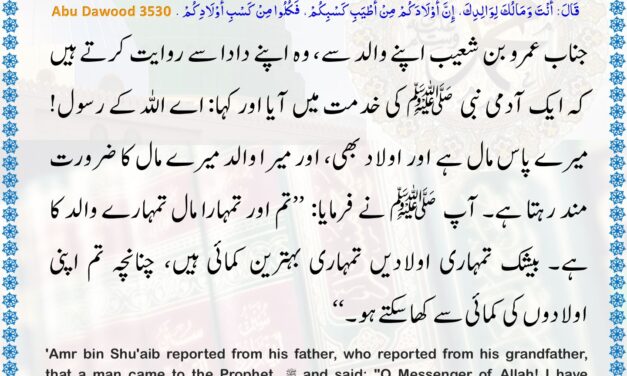 قَالَ: أَنْتَ وَمَالُكَ لِوَالِدِكَ. إِنَّ أَوْلَادَكُمْ مِنْ أَطْيَبِ كَسْبِكُمْ. فَكُلُوا مِنْ كَسْبِ أَوْلَادِكُمْ. Abu Dawood 3530
جناب عمرو بن شعیب اپنے والد سے، وہ اپنے دادا سے روایت کرتے ہیں
کہ ایک آدمی نبی ﷺ کی خدمت میں آیا اور کہا: اے اللہ کے رسول!
میرے پاس مال ہے اور اولاد بھی، اور میرا والد میرے مال کا ضرورت
مند رہتا ہے۔ آپ ﷺ نے فرمایا: ”تم اور تمہارا مال تمہارے والد کا
ہے۔ بیشک تمہاری اولادیں تمہاری بہترین کمائی ہیں، چنانچہ تم اپنی
اولادوں کی کمائی سے کھا سکتے ہو۔“
'Amr bin Shu'aib reported from his father, who reported from his grandfather,
that a man came to the Prophet ﷺ and said: "O Messenger of Allah! I have